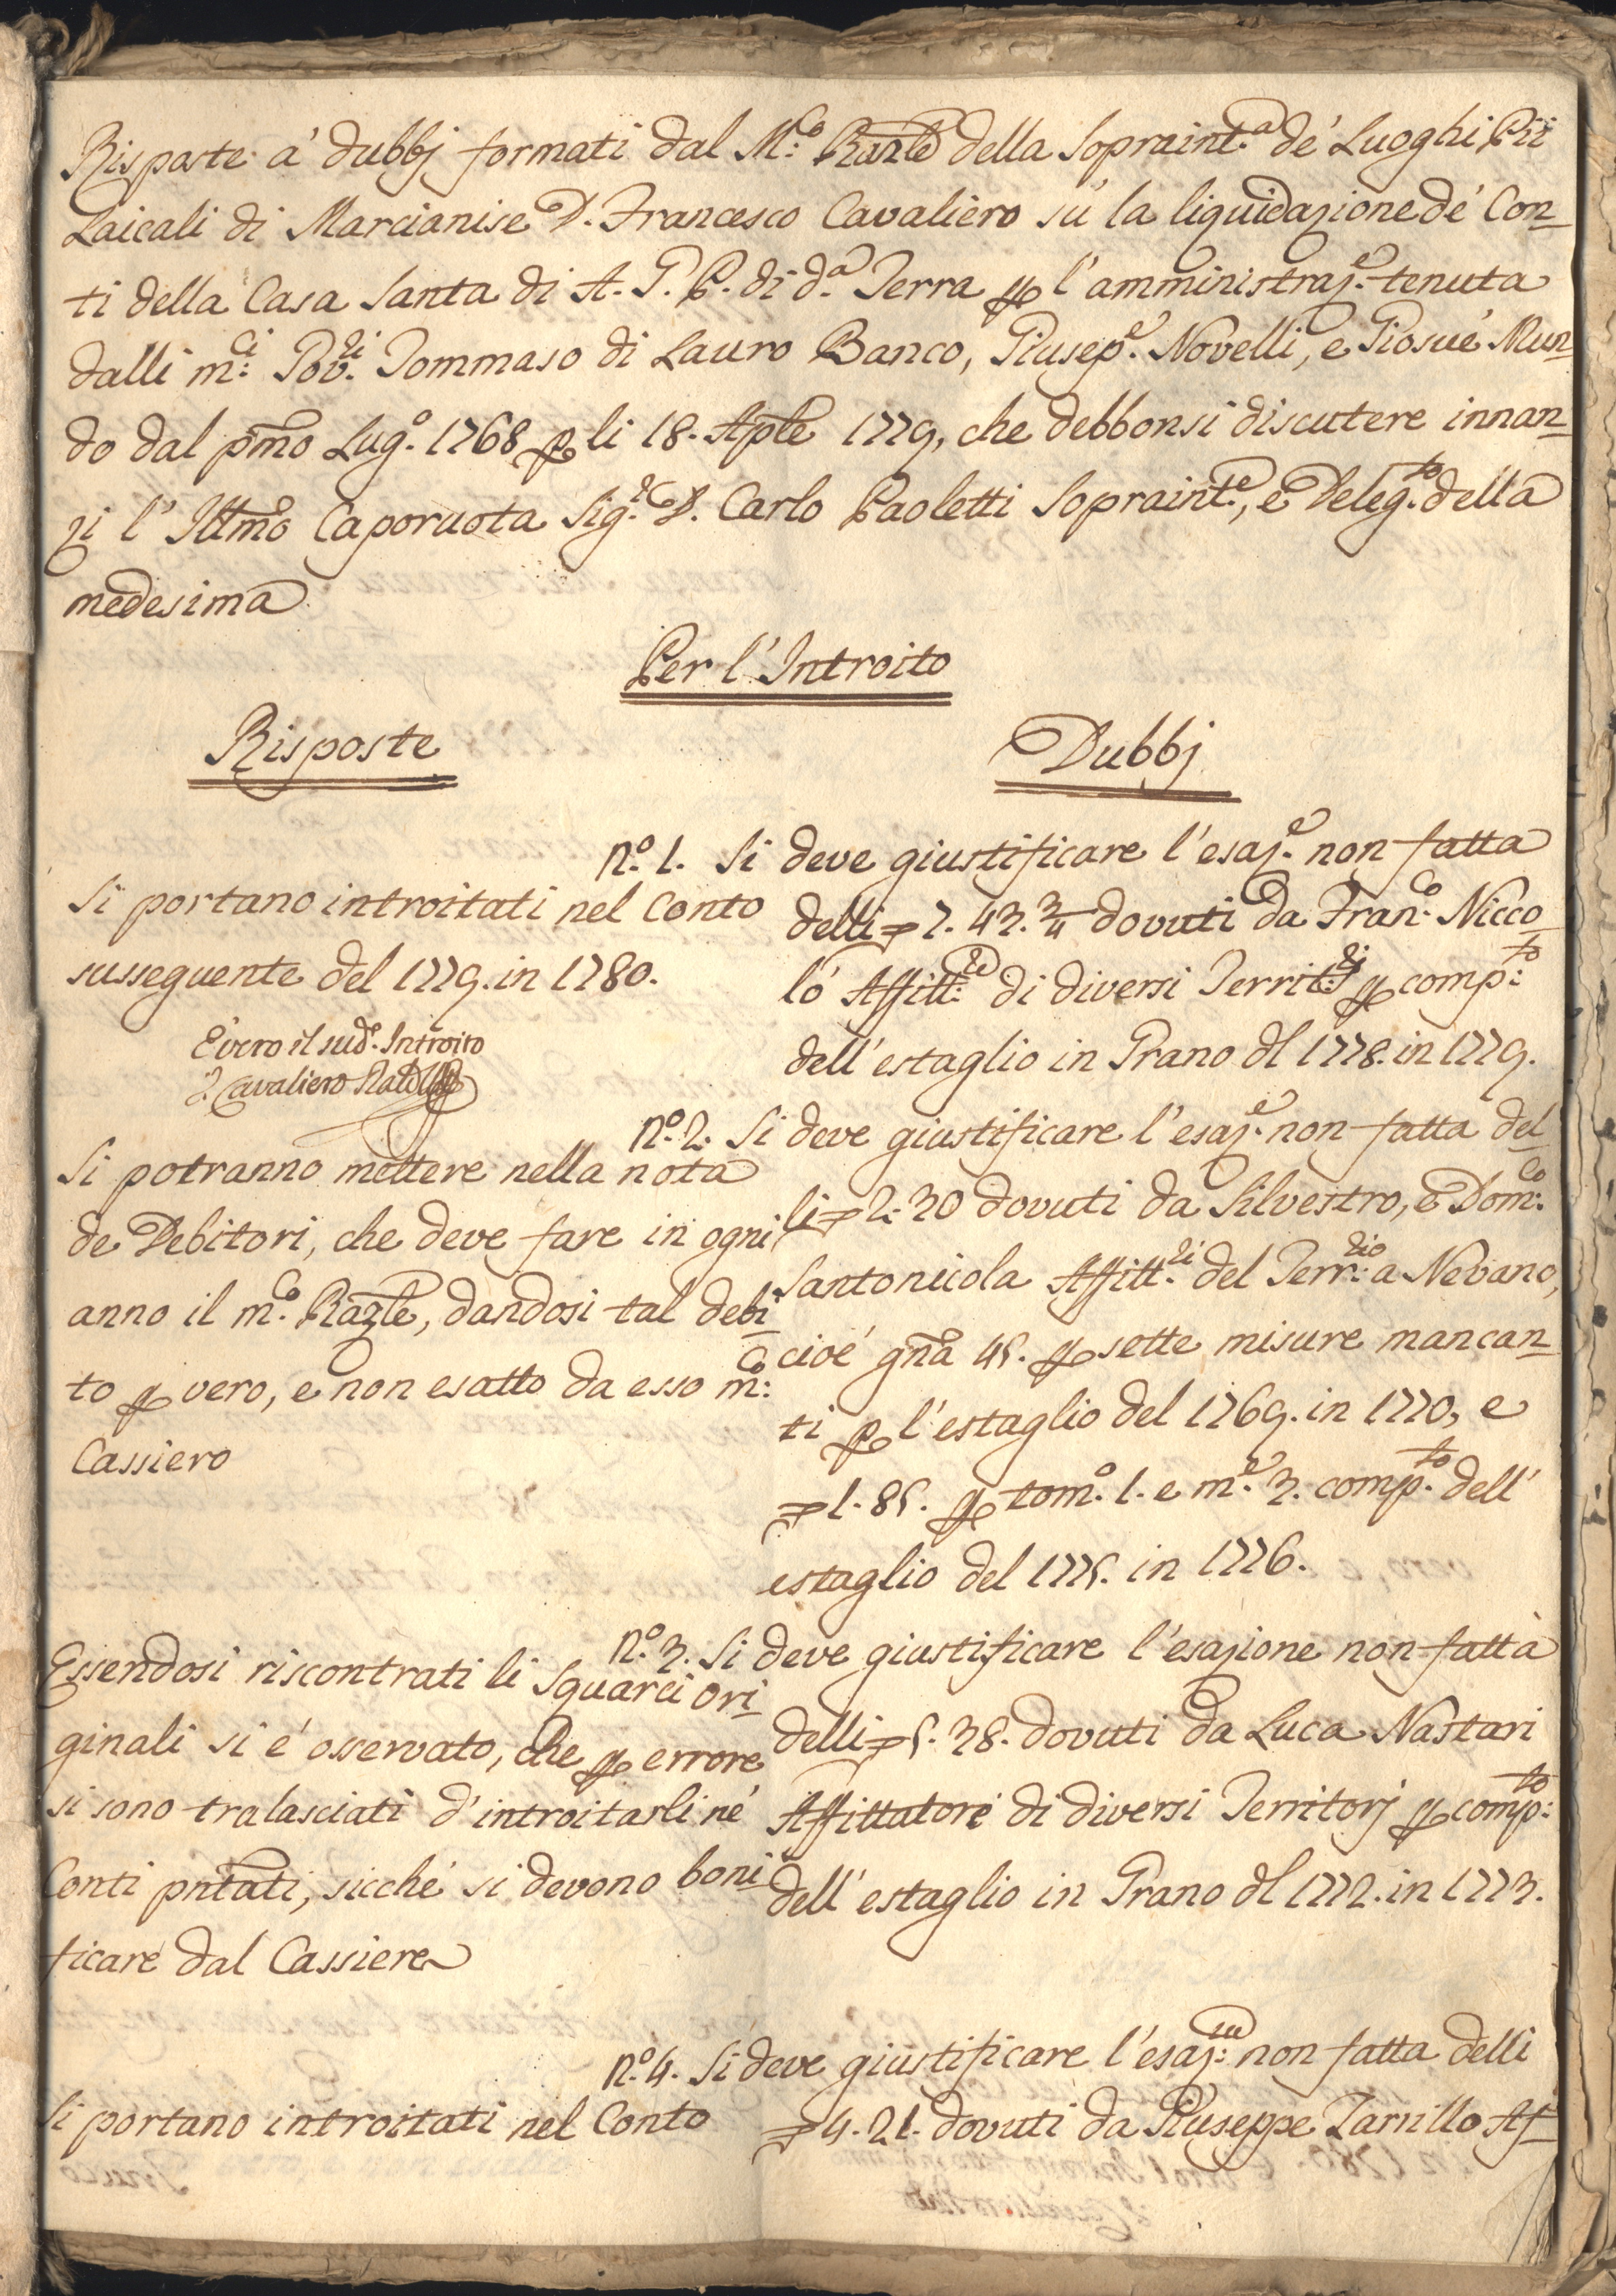 Risposte a' dubbj formati dal M:co Razle della Sopraint.a de' Luoghi Pii
Laicali di Marcianise D. Francesco Cavaliero su' la liquidazione de' Con-
ti della Casa Santa di A. G. P. di d.a Terra p l'amministraz.e tenuta
dalli m:ci Gov.ri Tommaso di Lauro Banco, Giusep.e Novelli, e Giosuè Mun-
do dal pmo Lug.o 1768 p li 18. Aple 1779, che debbonsi discutere innan-
zi l'Illmo Caporuota Sig.r D. Carlo Paoletti Sopraint.e, e Deleg.to della
medesima
Per l'Introito
Risposte
Dubbj
Si portano introitati nel Conto
susseguente del 1779. in 1780.
È vero il sud.o Introito
Cavaliero Razle
n.o 1. Si deve giustificare l'esaz.e non fatta
delli 7. 43. 3/4 dovuti da Fran.co Nicco-
lò Affitt:re di diversi Territ:rj p comp:to
dell'estaglio in Grano dl 1778. in 1779.
Si potranno mettere nella nota
de Debitori, che deve fare in ogni
anno il m.co Razle, dandosi tal debi-
to p vero, e non esatto da esso m:co
Cassiero
n.o 2. Si deve giustificare l'esaz.e non fatta del-
li 2. 30 dovuti da Silvestro, e Dom:co
Santonicola Affitt.ri del Terr:rio a Nevano,
cioè gna 45. p sette misure mancan-
ti p l'estaglio del 1769. in 1770, e
1. 85. p tom.o 1. e m.e 3. comp.to dell'
estaglio del 1775. in 1776.
Essendosi riscontrati li Squarci ori-
ginali si è osservato, che p errore
si sono tralasciati d'introitarli né
Conti pntati, sicché si devono boni-
ficare dal Cassiere
n.o 3. Si deve giustificare l'esazione non fatta
delli 5. 38. dovuti da Luca Nastari
Affittatore di diversi Territorj p comp:to
dell'estaglio in Grano dl 1772. in 1773.
Si portano introitati nel Conto
n.o 4. Si deve giustificare l'esaz:ne non fatta delli
4. 21. dovuti da Giuseppe Zarrillo Af-